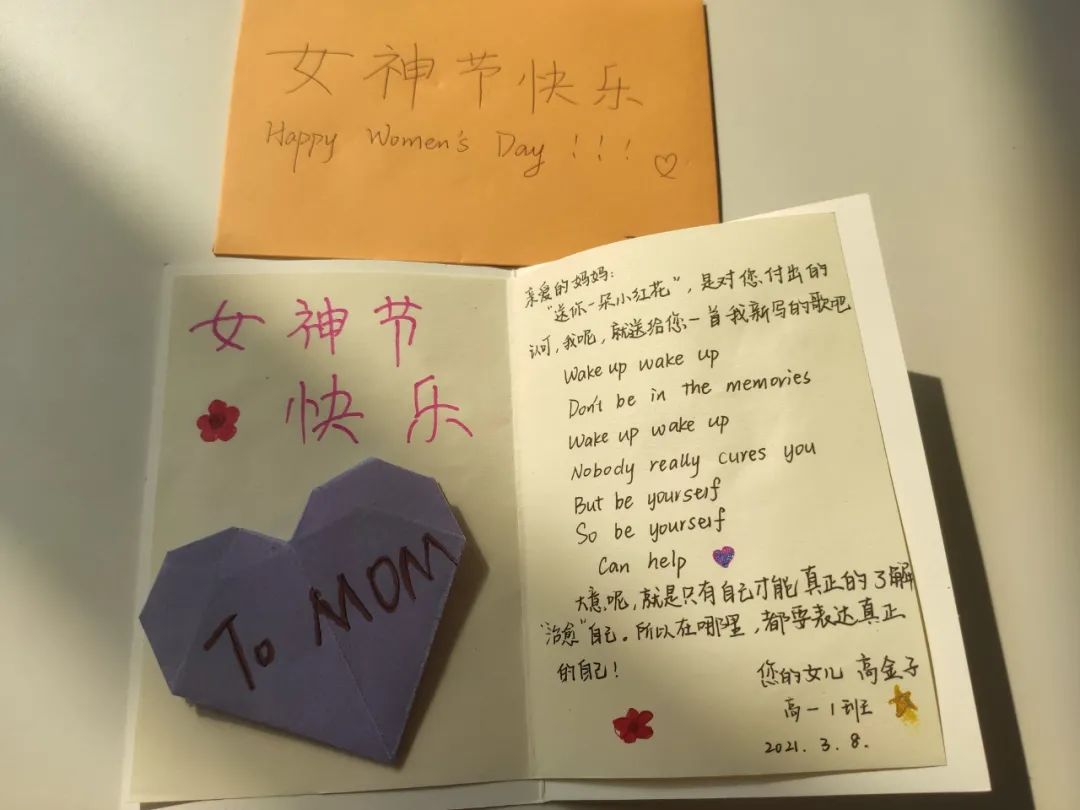 女神节快乐
Happy Women's Day !!!
女神节
快乐
To MOM
亲爱的妈妈：
"送你一朵小红花"，是对您付出的
认可，我呢，就送给您一首我新写的歌吧
Wake up wake up
Don't be in the memories
Wake up wake up
Nobody really cures you
But be yourself
So be yourself
Can help
大意呢，就是只有自己才能真正的了解
"治愈"自己。所以在哪里，都要表达真正
的自己！
您的女儿 高金子
高一1班
2021.3.8.